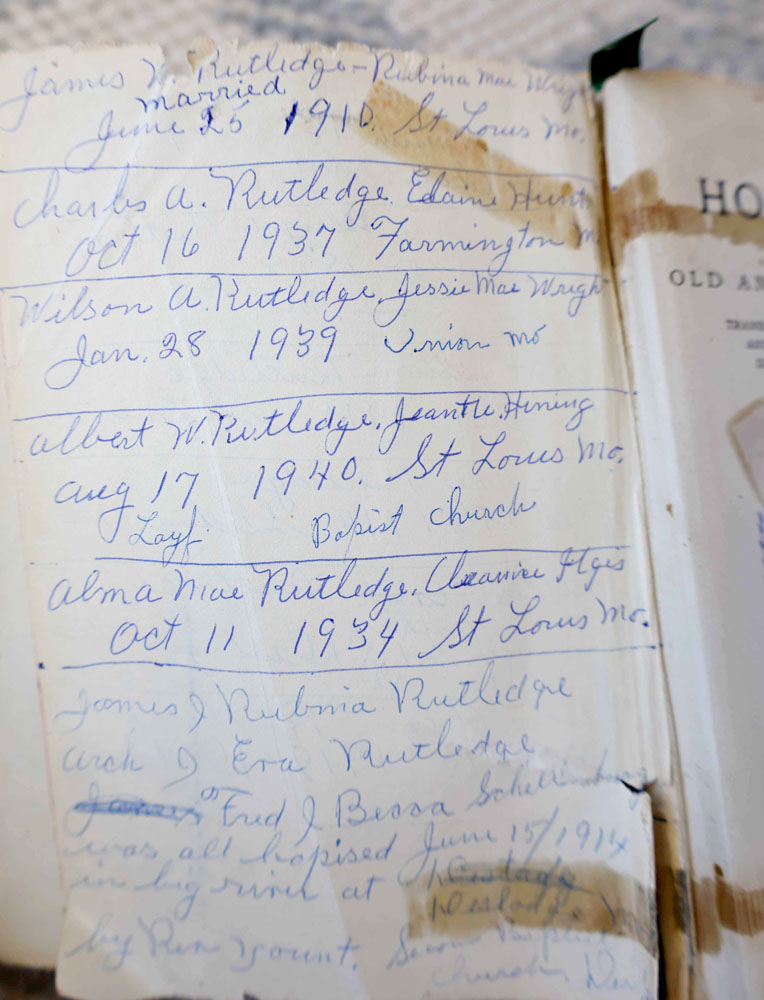 James W. Rutledge - Rubina Mae Wright
married
June 25 1910. St Louis Mo.
Charles A. Rutledge. Elaine Hunt
Oct 16 1937 Farmington M
Wilson A. Rutledge, Jessie Mae Wright
Jan. 28 1939 Union Mo
Albert W. Rutledge. Hening
Aug 17 1940. St Louis Mo.
Layf Bapist Church
Alma Mae Rutledge.
Oct 11 1934 St Louis Mo.
James & Rubnia Rutledge
Arch & Eva Rutledge
Fred & Bessa
was all bapised June 15/1914
in big river at
by Rev Yount.
church
HO
OLD AN